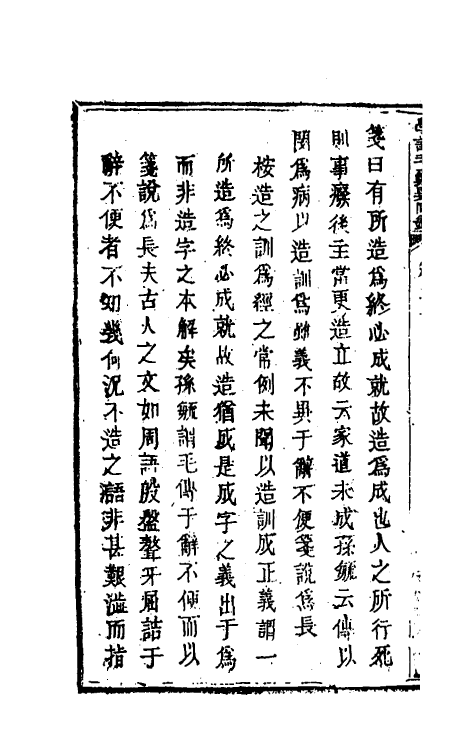 箋曰有所造爲終必成就故造爲成也人之所行死
則事廢後主當更造立故云家道未成孫毓云傳以
閔爲病以造訓爲義不異于辭不便箋說爲長
桉造之訓爲經之常例未聞以造訓成正義謂一
所造爲終必成就故造猶成是成字之義出于爲
而非造字之本解矣孫毓謂毛傳于辭不便而以
箋說爲長夫古人之文如周語殷盤聱牙屈詰于
辭不便者不知幾何況不造之語非甚艱澁而指